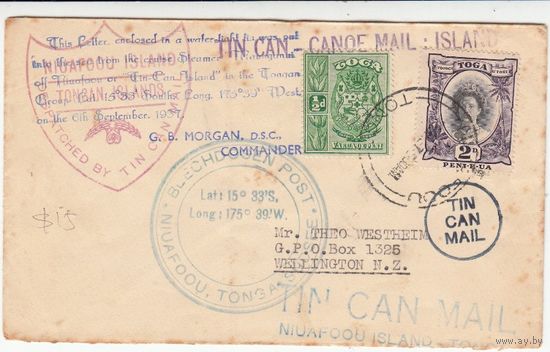 TIN CAN - CANOE MAIL : ISLAND
This Letter enclosed in a water-tight tin was put
into the sea from the Cruise Steamer
of Niuafoou or "Tin Can Island" in the Tongan
Group Lat. 15°33' South; Long. 175°33' West
on the 6th September, 1937.
G. B. MORGAN, D.S.C.,
COMMANDER
NIUAFOOU ISLAND
TONGAN ISLANDS
BY TIN CAN
TOGA
½d
VAEUAGE PENI
TOGA
2d
PENI-E-UA
POST
NIUAFOOU, TONGA
Lat: 15° 33'S,
Long: 175° 39'W.
TIN
CAN
MAIL
$15
Mr. THEO WESTHEIM
G.P.O.Box 1325
WELLINGTON N.Z.
TIN CAN MAIL
NIUAFOOU ISLAND - TON
www.ay.by